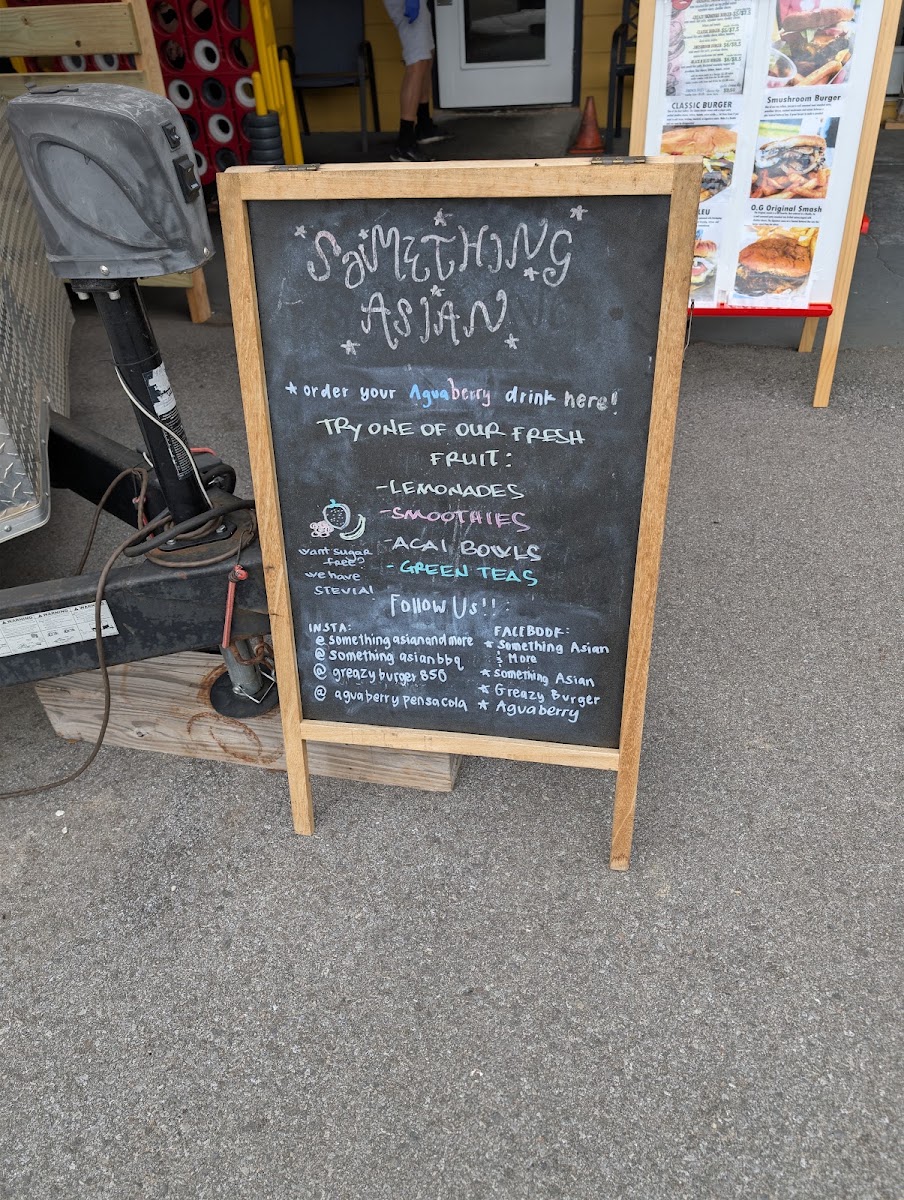 SOMETHING
ASIAN
* order your Aguaberry drink here!
TRY ONE OF OUR FRESH
FRUIT:
-LEMONADES
-SMOOTHIES
-ACAI BOWLS
-GREEN TEAS
want sugar
free?
we have
STEVIA!
Follow Us!!:
INSTA:
@somethingasianandmore
@somethingasianbbq
@greazyburger850
@aguaberrypensacola
FACEBOOK:
* Something Asian
& More
* Something Asian
* Greazy Burger
* Aguaberry
CLASSIC BURGER
Smushroom Burger
O.G Original Smash
WARNING WARNING